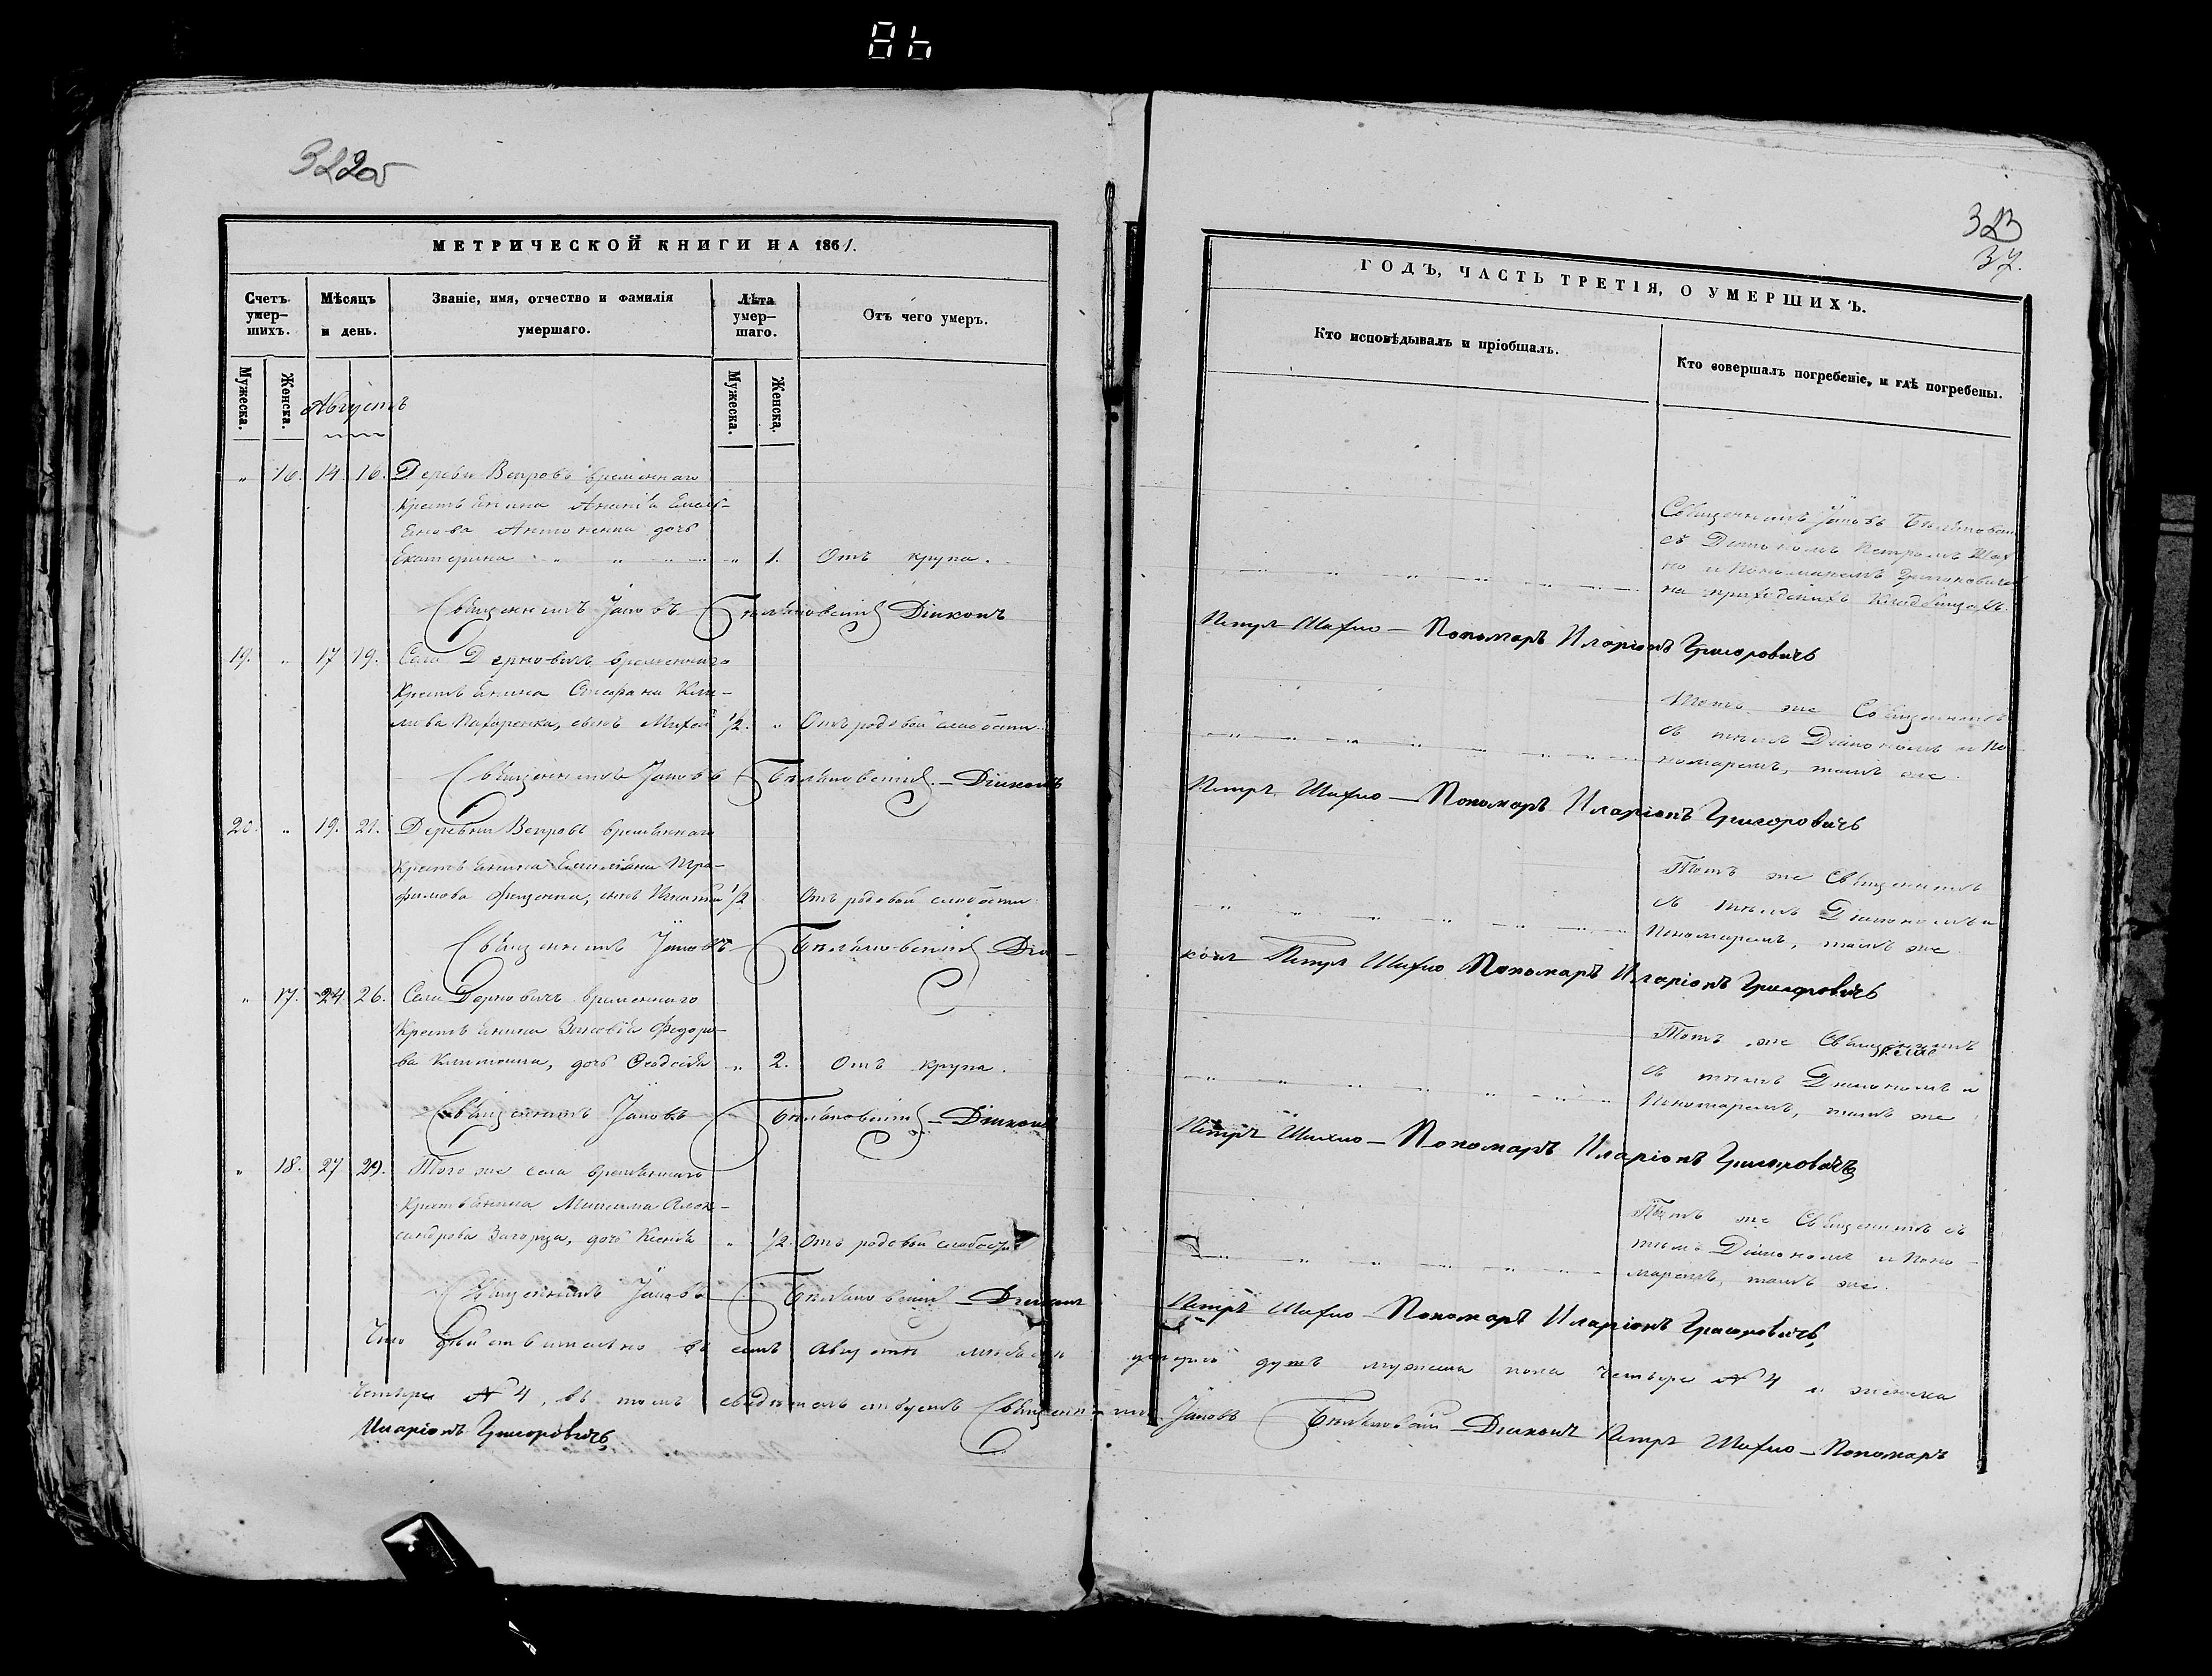 86
322об
МЕТРИЧЕСКОЙ КНИГИ НА 1861.
Счетъ умер-шихъ.
Мѣсяцъ и день.
Званіе, имя, отчество и фамилія умершаго.
Лѣта умер-шаго.
Отъ чего умеръ.
Мужеска.
Женска.
Августъ
Мужеска.
Женска.
" 16. 14 16. Деревни Вепровъ временнаго
крестьянина Ананія Емель-
янова Антоненка дочь
Екатерина " " " " 1. Отъ крупа.
Священникъ Іаковъ Діаконъ
19. " 17 19. Села Дерновичъ временнаго
крестьянина Стефана Кли-
мова Захаренка, сынъ 1/2. " Отъ родовой слабости.
Священникъ Іаковъ Діаконъ
20. " 19. 21. Деревни Вепровъ временнаго
крестьянина Емиліана Тро-
фимова сынъ 1/2 Отъ родовой слабости
Священникъ Іаковъ Діа-
" 17. 24 26. Села Дерновичъ временнаго
крестьянина Федоро-
ва дочь Ѳеодосія " 2. Отъ крупа.
Священникъ Іаковъ Діаконъ
" 18. 27 29. Того же села временнаго
крестьянина Максима Алек-
сандрова дочь Ксенія " 1/2. Отъ родовой слабости
Священникъ Іаковъ Діаконъ
323
37.
ГОДЪ, ЧАСТЬ ТРЕТІЯ, О УМЕРШИХЪ.
Кто исповѣдывалъ и пріобщалъ.
Кто совершалъ погребеніе, и гдѣ погребены.
Священникъ Іаковъ
съ Діакономъ Петромъ Шах
но и Пономаремъ Григоровичемъ
на приходскихъ кладбищахъ.
Петръ Шахно — Пономарь Иларіонъ Григоровичъ
Тотъ же Священникъ
съ тѣмъ Діакономъ и По
номаремъ, тамъ же.
Петръ Шахно — Пономарь Иларіонъ Григоровичъ
Тотъ же Священникъ
съ тѣмъ Діакономъ и
Пономаремъ, тамъ же
конъ Петръ Шахно Пономарь Иларіонъ Григоровичъ
Тотъ же Священникъ
съ тѣмъ Діакономъ и
Пономаремъ, тамъ же
Петръ Шахно — Пономарь Иларіонъ Григоровичъ
Тотъ же Священникъ съ
тѣмъ Діакономъ и Поно-
маремъ, тамъ же.
Петръ Шахно — Пономарь Иларіонъ Григоровичъ
Что дѣйствительно въ семъ Августѣ мѣсяцѣ умерло душъ мужеска пола четыре № 4 и женска
четыре № 4, въ томъ свидѣтельствуемъ Священникъ Іаковъ Діаконъ Петръ Шахно — Пономарь
Иларіонъ Григоровичъ